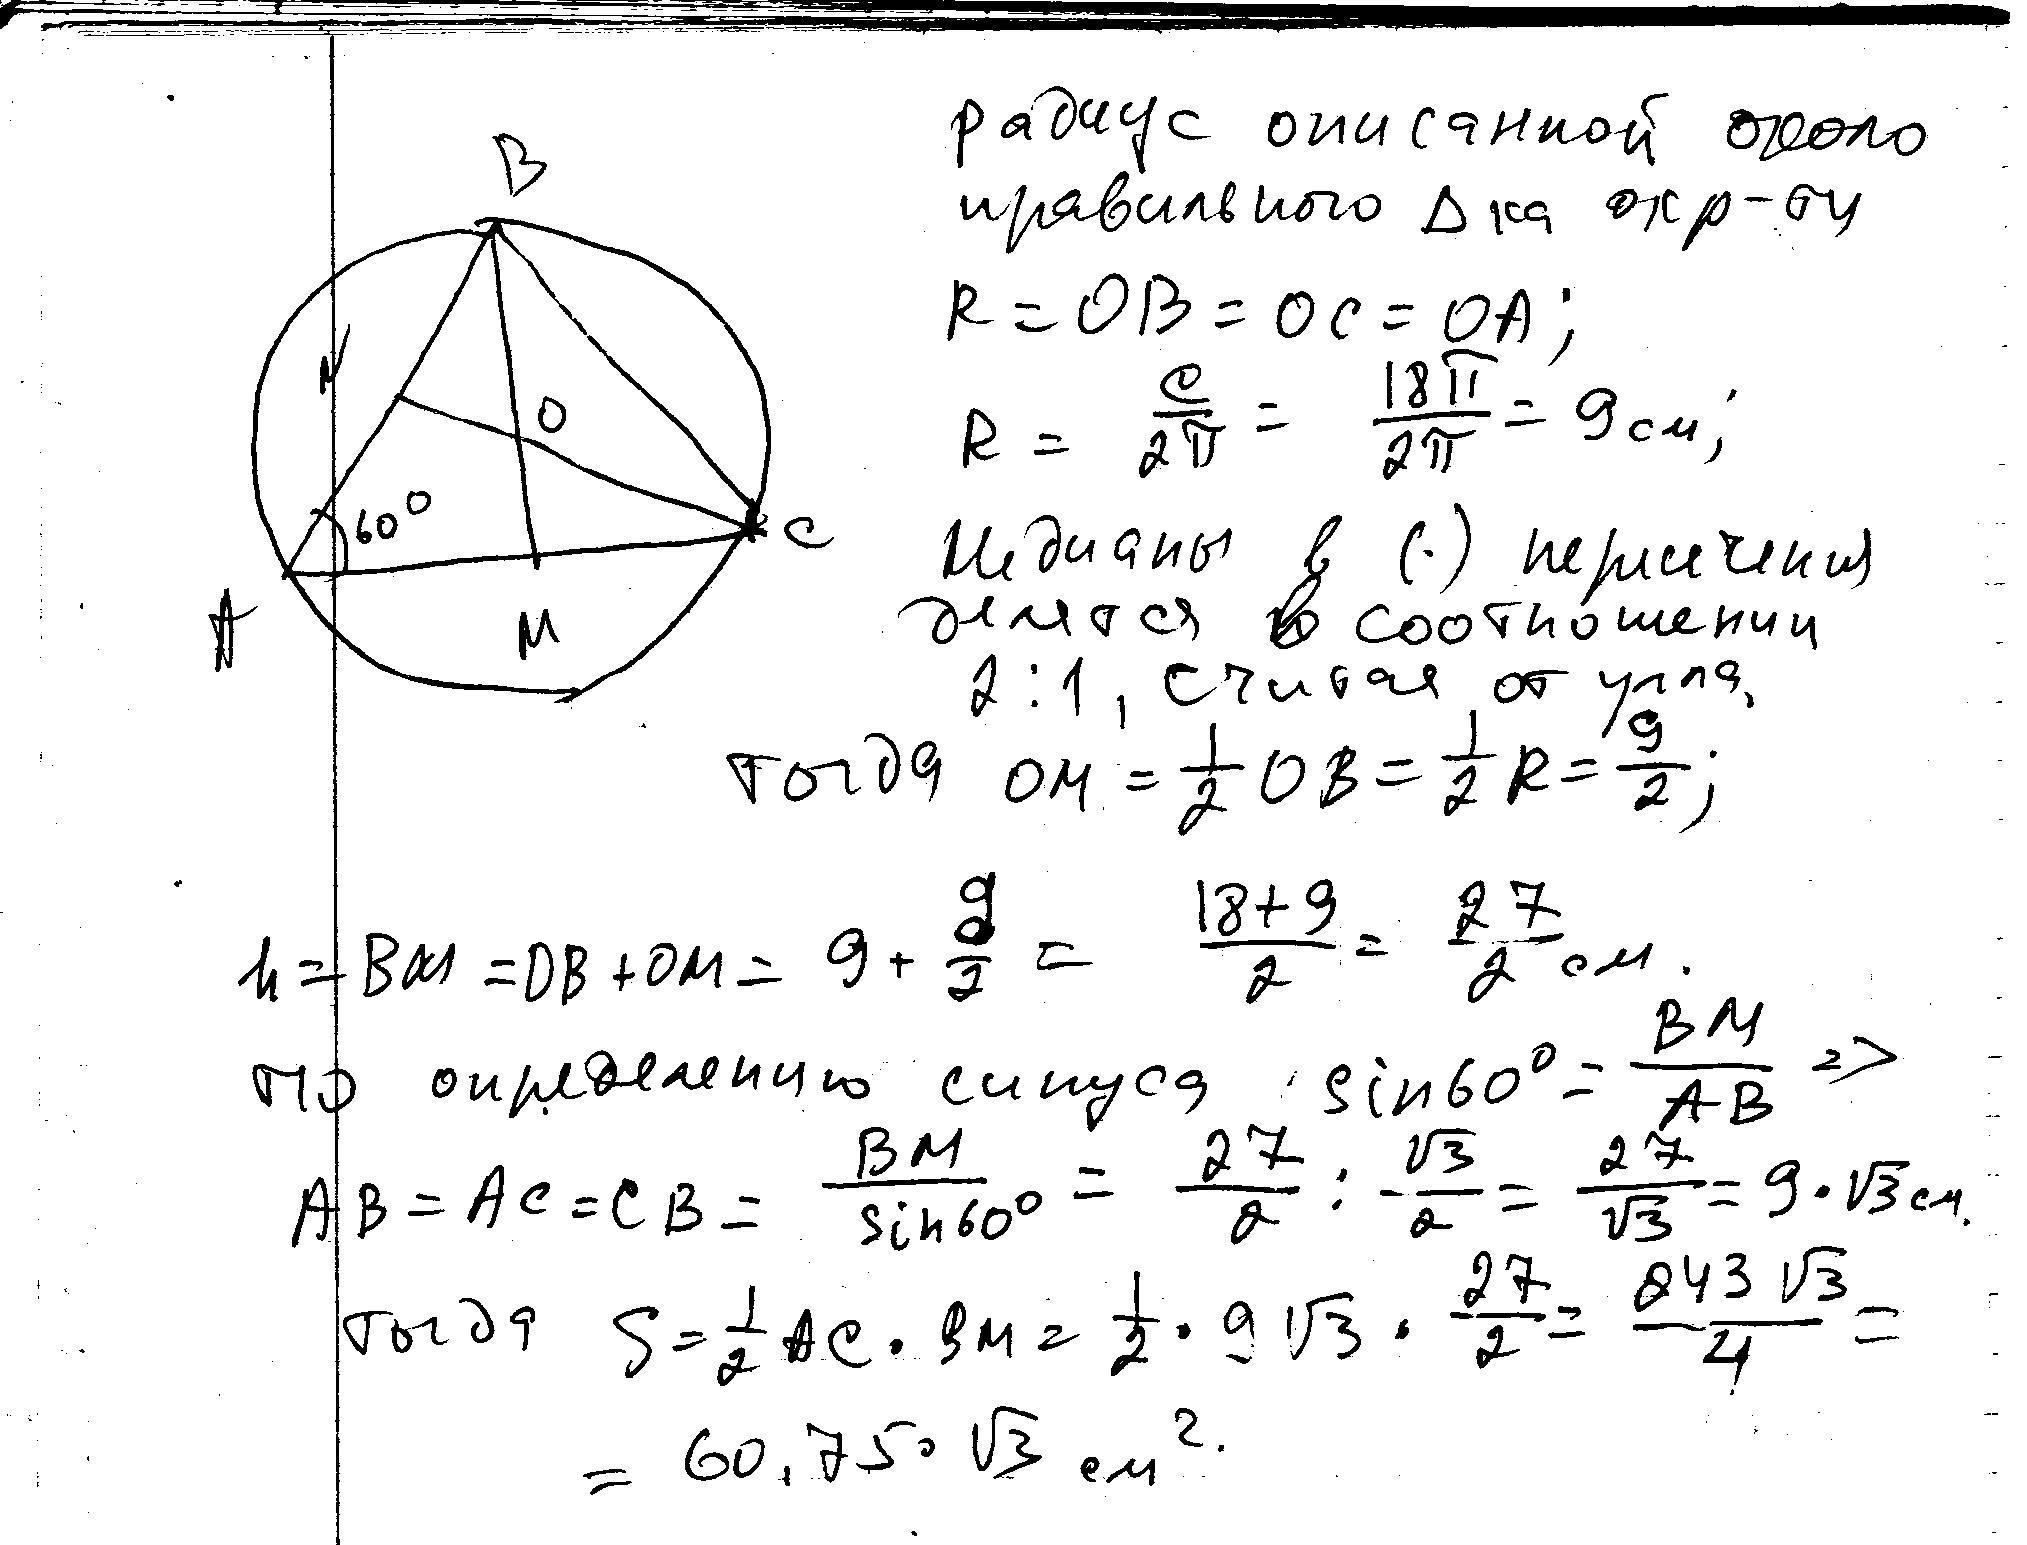 B
N
O
60°
C
A
M
радиус описанной около
правильного Δ ка окр-ти
R = OB = OC = OA;
R = C/2π = 18π/2π = 9 см;
Медианы в (·) пересечения
делятся в соотношении
2:1, считая от угла.
тогда OM = 1/2 OB = 1/2 R = 9/2;
h = BM = OB + OM = 9 + 9/2 = 18+9/2 = 27/2 см.
По определению синуса sin60° = BM/AB =>
AB = AC = CB = BM/sin60° = 27/2 : √3/2 = 27/√3 = 9·√3 см.
тогда S = 1/2 AC · BM = 1/2 · 9√3 · 27/2 = 243√3/4 =
= 60,75·√3 см².